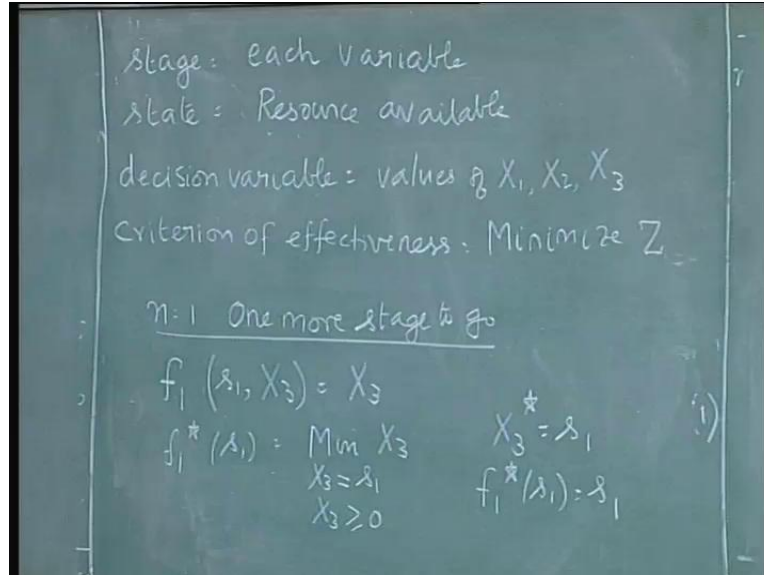 stage: each variable
state: Resource available
decision variable: values of X₁, X₂, X₃
Criterion of effectiveness: Minimize Z
n=1 One more stage to go
f₁ (s₁, X₃) = X₃
f₁* (s₁) = Min X₃
X₃ = s₁
X₃ ≥ 0
X₃* = s₁
f₁*(s₁) = s₁